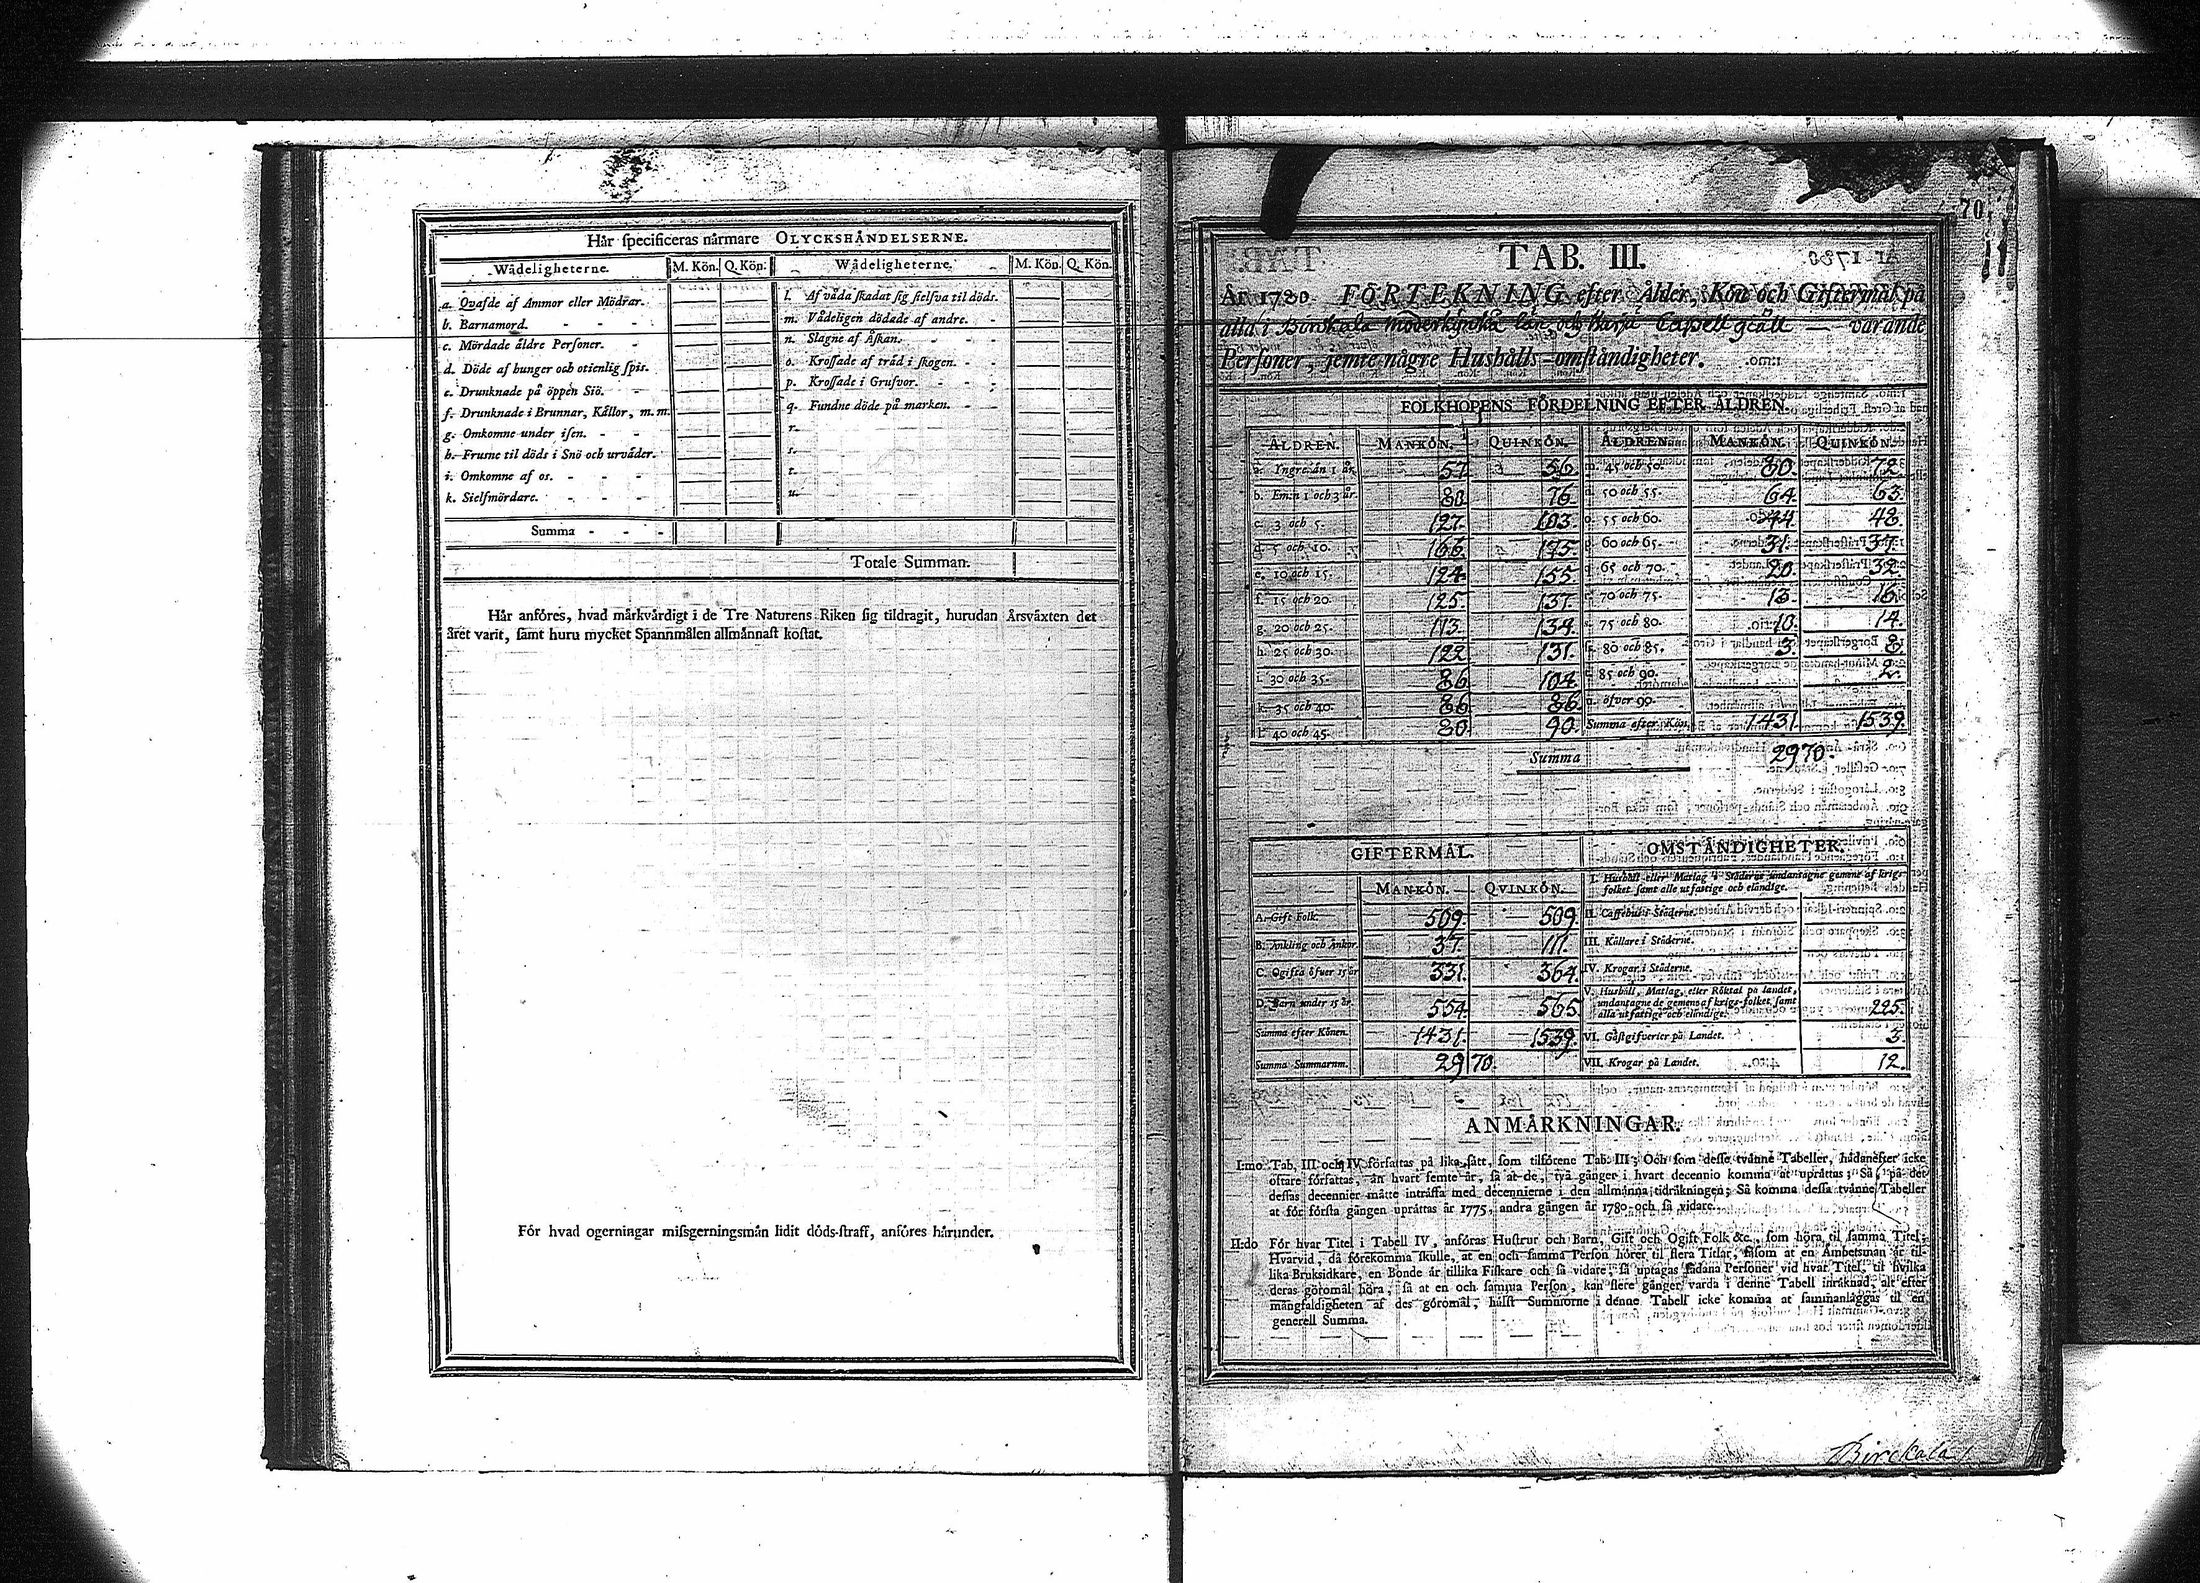 Här specificeras närmare OLYCKSHÄNDELSERNE.
Wådeligheterne. M. Kön. Q. Kön. Wådeligheterne. M. Kön. Q. Kön.
a. Qvafde af Ammor eller Mödrar.
b. Barnamord.
c. Mördade äldre Personer.
d. Döde af hunger och otienlig spis.
e. Drunknade på öppen Siö.
f. Drunknade i Brunnar, Källor, m. m.
g. Omkomne under isen.
h. Frusne til döds i Snö och urväder.
i. Omkomne af os.
k. Sielfmördare.
l. Af våda skadat sig sielfva til döds.
m. Vådeligen dödade af andre.
n. Slagne af Åskan.
o. Krossade af träd i skogen.
p. Krossade i Grufvor.
q. Fundne döde på marken.
r.
s.
t.
u.
Summa
Totale Summan.
Här anföres, hvad märkvärdigt i de Tre Naturens Riken sig tildragit, hurudan Årsväxten det
året varit, samt huru mycket Spannmålen allmännast kostat.
För hvad ogerningar missgerningsmän lidit döds-straff, anföres härunder.
70.
TAB. III.
År 1780. FÖRTEKNING efter Ålder, Kön och Giftermål på
alla i Birckala Moderkyrka län och Harju Capell giäll — varande
Personer, jemte några Hushålls-omständigheter.
FOLKHOPENS FÖRDELNING EFTER ÅLDREN.
ÅLDREN. MANKÖN. QUINKÖN. ÅLDREN. MANKÖN. QUINKÖN.
a. Yngre än 1 år. 57. 56. m. 45 och 50. 80. 72.
b. Emn 1 och 3 år. 80. 76. n. 50 och 55. 64. 63.
c. 3 och 5. 127. 103. o. 55 och 60. 44. 48.
d. 5 och 10. 166. 175. p. 60 och 65. 31. 37.
e. 10 och 15. 124. 155. q. 65 och 70. 20. 32.
f. 15 och 20. 125. 137. r. 70 och 75. 13. 16.
g. 20 och 25. 113. 134. 75 och 80. 10. 14.
h. 25 och 30. 122. 131. 80 och 85. 3. 8.
i. 30 och 35. 86. 104. 85 och 90. 2.
k. 35 och 40. 86. 86. u. öfver 90.
l. 40 och 45. 80. 90. Summa efter Kön. 1431. 1539.
Summa 2970.
GIFTERMÅL. OMSTÄNDIGHETER.
MANKÖN. QVINKÖN.
A. Gift Folk. 509. 509.
B. Änkling och Änkor. 37. 111.
C. Ogifta öfver 15 år 331. 364.
D. Barn under 15 år. 554. 565.
Summa efter Könen. 1431. 1539.
Summa Summarum. 2970.
I. Hushåll eller Matlag i Städerne undantagne gemene af krigs-
folket samt alle utfattige och eländige.
II. Caffehus i Städerne.
III. Källare i Städerne.
IV. Krogar i Städerne.
V. Hushåll, Matlag, eller Röktal på landet,
undantagne de gemene af krigs-folket, samt
alla utfattige och eländige. 225.
VI. Gästgifverier på Landet. 3.
VII. Krogar på Landet. 12.
ANMÄRKNINGAR.
I:mo. Tab. III och IV författas på lika sätt, som tilförene Tab. III; Och som desse tvänne Tabeller, hädanefter icke
oftare författas, än hvart femte år, så at de, två gånger i hvart decennio komma at uprättas; Så, på det
dessas decennier måtte inträffa med decennierne i den allmänna tidräkningen; Så komma dessa tvänne Tabeller
at för första gången uprättas år 1775, andra gången år 1780 och så vidare.
II:do För hvar Titel i Tabell IV, anföras Hustrur och Barn, Gift och Ogift Folk &c. som höra til samma Titel;
Hvarvid, då förekomma skulle, at en och samma Person hörer til flera Titlar, såsom at en Ämbetsman är til-
lika Bruksidkare, en Bonde är tillika Fiskare och så vidare, så uptagas sådana Personer vid hvar Titel, til hvilka
deras göromål höra, så at en och samma Person, kan flere gånger varda i denne Tabell inräknad, alt efter
mångfaldigheten af des göromål, hälst Summorne i denne Tabell icke komma at sammanläggas til en
generell Summa.
Birckala